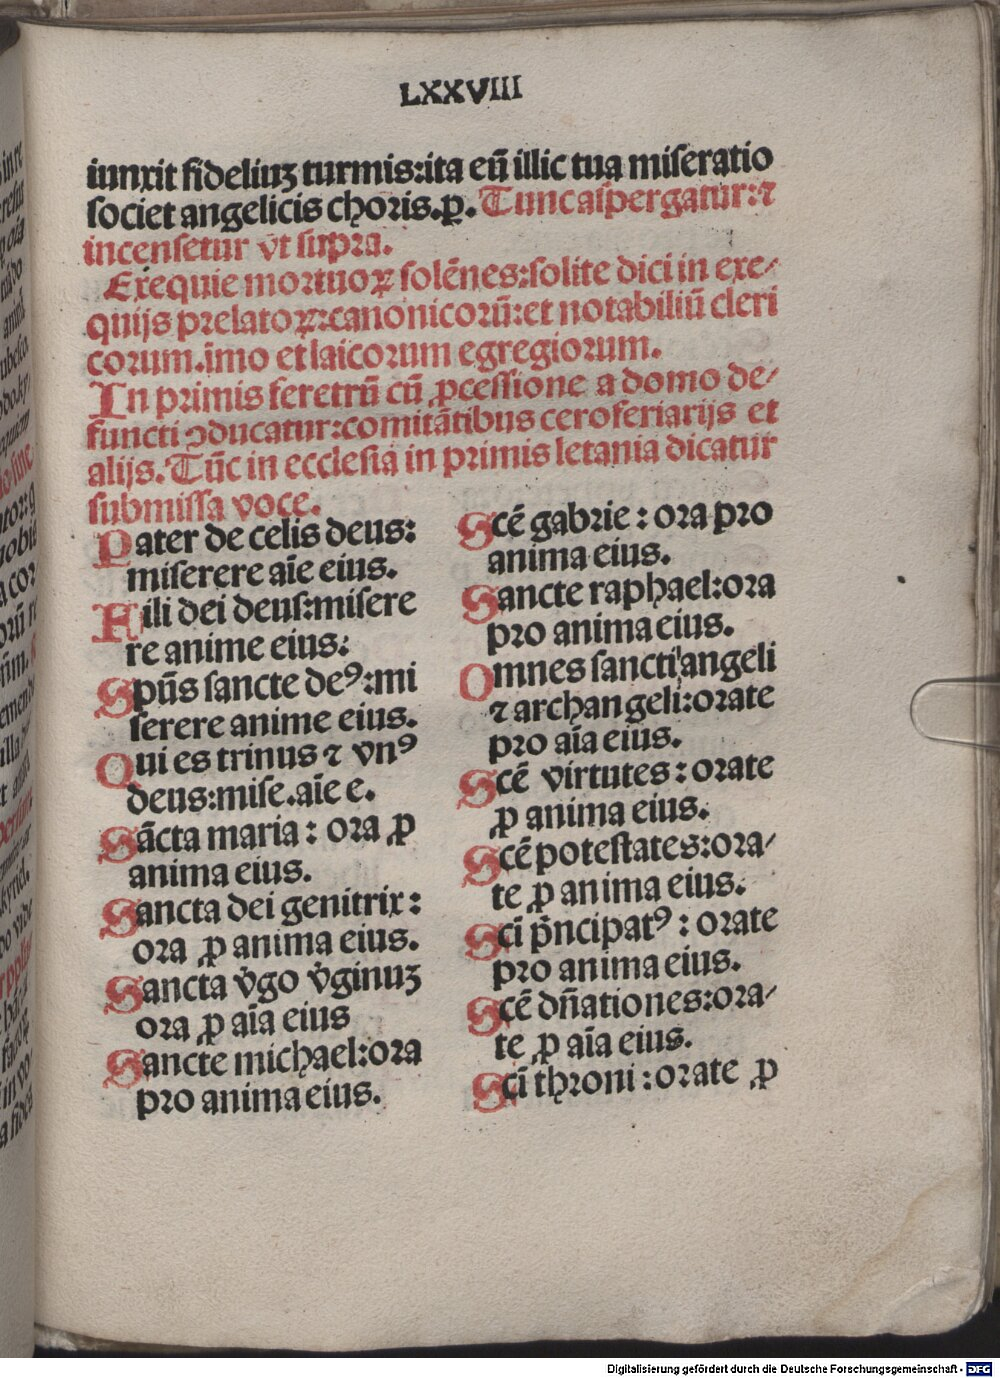 LXXVIII
iunxit fideliuʒ turmis:ita eū illic tua miseratio
societ angelicis choris.ꝑ. Tunc aspergatur:⁊
incensetur vt supra.
Exequie mortuoꝝ solēnes:solite dici in exe⸗
quijs prelatoꝝ:canonicorū:et notabiliū cleri
corum.īmo et laicorum egregiorum.
In primis feretrū cū ꝓcessione a domo de⸗
functi ↄducatur:comitātibus ceroferiarijs et
alijs. Tūc in ecclesia in primis letania dicatur
submissa voce.
Pater de celis deus:
miserere aīe eius.
Fili dei deus:misere
re anime eius:
Spūs sancte deꝰ:mi
serere anime eius.
Qui es trinus ⁊ vnꝰ
deus:mise.aīe e.
Sācta maria: ora ꝓ
anima eius.
Sancta dei genitrix:
ora ꝓ anima eius.
Sancta v̓go v̓ginuʒ
ora ꝓ aīa eius
Sancte michael:ora
pro anima eius.
Scē gabrie: ora pro
anima eius.
Sancte raphael:ora
pro anima eius.
Omnes sancti angeli
⁊ archangeli:orate
pro aīa eius.
Scē virtutes: orate
ꝓ anima eius.
Scē potestates:ora⸗
te ꝓ anima eius.
Scī p̄ncipatꝰ: orate
pro anima eius.
Scē dn̄ationes:ora⸗
te ꝓ aīa eius.
Scī throni: orate ꝓ
Digitalisierung gefördert durch die Deutsche Forschungsgemeinschaft - DFG